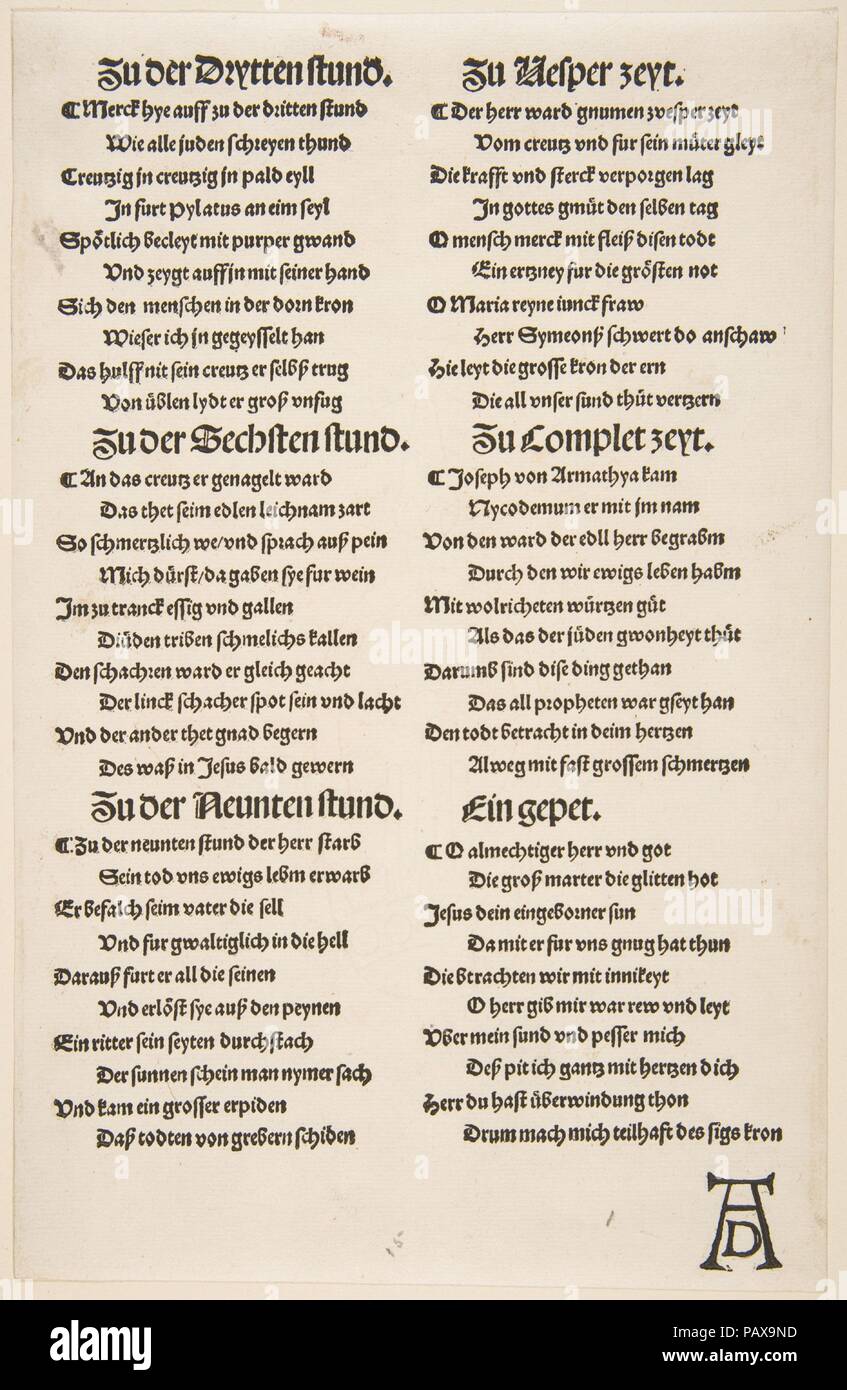 Zu der Drytten stund.
¶ Merck hye auff zu der dritten stund
Wie alle juden schreyen thund
Creutzig jn creutzig jn pald eyll
In furt Pylatus an eim seyl
Spötlich becleyt mit purper gwand
Vnd zeygt auff jn mit seiner hand
Sich den menschen in der dorn kron
Wie ser ich jn gegeysselt han
Das hulff nit sein creutz er selbß trug
Von üblen lydt er groß vnfug
Zu der Sechsten stund.
¶ An das creutz er genagelt ward
Das thet seim edlen leichnam zart
So schmertzlich we/vnd sprach auß pein
Mich dürst/da gaben sye fur wein
Im zu tranck essig vnd gallen
Die iüden triben schmelichs kallen
Den schachren ward er gleich geacht
Der linck schacher spot sein vnd lacht
Vnd der ander thet gnad begern
Des waß in Jesus bald gewern
Zu der Neunten stund.
¶ Zu der neunten stund der herr starb
Sein tod vns ewigs lebm erwarb
Er befalch seim vater die sell
Vnd fur gwaltiglich in die hell
Darauß furt er all die seinen
Vnd erlöst sye auß den peynen
Ein ritter sein seyten durchstach
Der sunnen schein man nymer sach
Vnd kam ein grosser erpiden
Daß todten von grebern schiden
Zu Uesper zeyt.
¶ Der herr ward gnumen zvesper zeyt
Vom creutz vnd fur sein müter gleyt
Die krafft vnd sterck verporgen lag
In gottes gmüt den selben tag
O mensch merck mit fleiß disen todt
Ein ertzney fur die grösten not
O Maria reyne iunckfraw
Herr Symeonß schwert do anschaw
Hie leyt die grosse kron der ern
Die all vnser sund thüt vertzern
Zu Complet zeyt.
¶ Joseph von Armathya kam
Nycodemum er mit jm nam
Von den ward der edll herr begrabm
Durch den wir ewigs leben habm
Mit wolricheten würtzen güt
Als das der jüden gwonheyt thüt
Darumb sind dise ding gethan
Das all propheten war gseyt han
Den todt betracht in deim hertzen
Alweg mit fast grossem schmertzen
Ein gepet.
¶ O almechtiger herr vnd got
Die groß marter die glitten hot
Jesus dein eingeborner sun
Da mit er fur vns gnug hat thun
Die btrachten wir mit innikeyt
O herr gib mir war rew vnd leyt
Vber mein sund vnd pesser mich
Deß pit ich gantz mit hertzen dich
Herr du hast überwindung thon
Drum mach mich teilhaft des sigs kron
AD
15
alamy
Image ID: PAX9ND
www.alamy.com